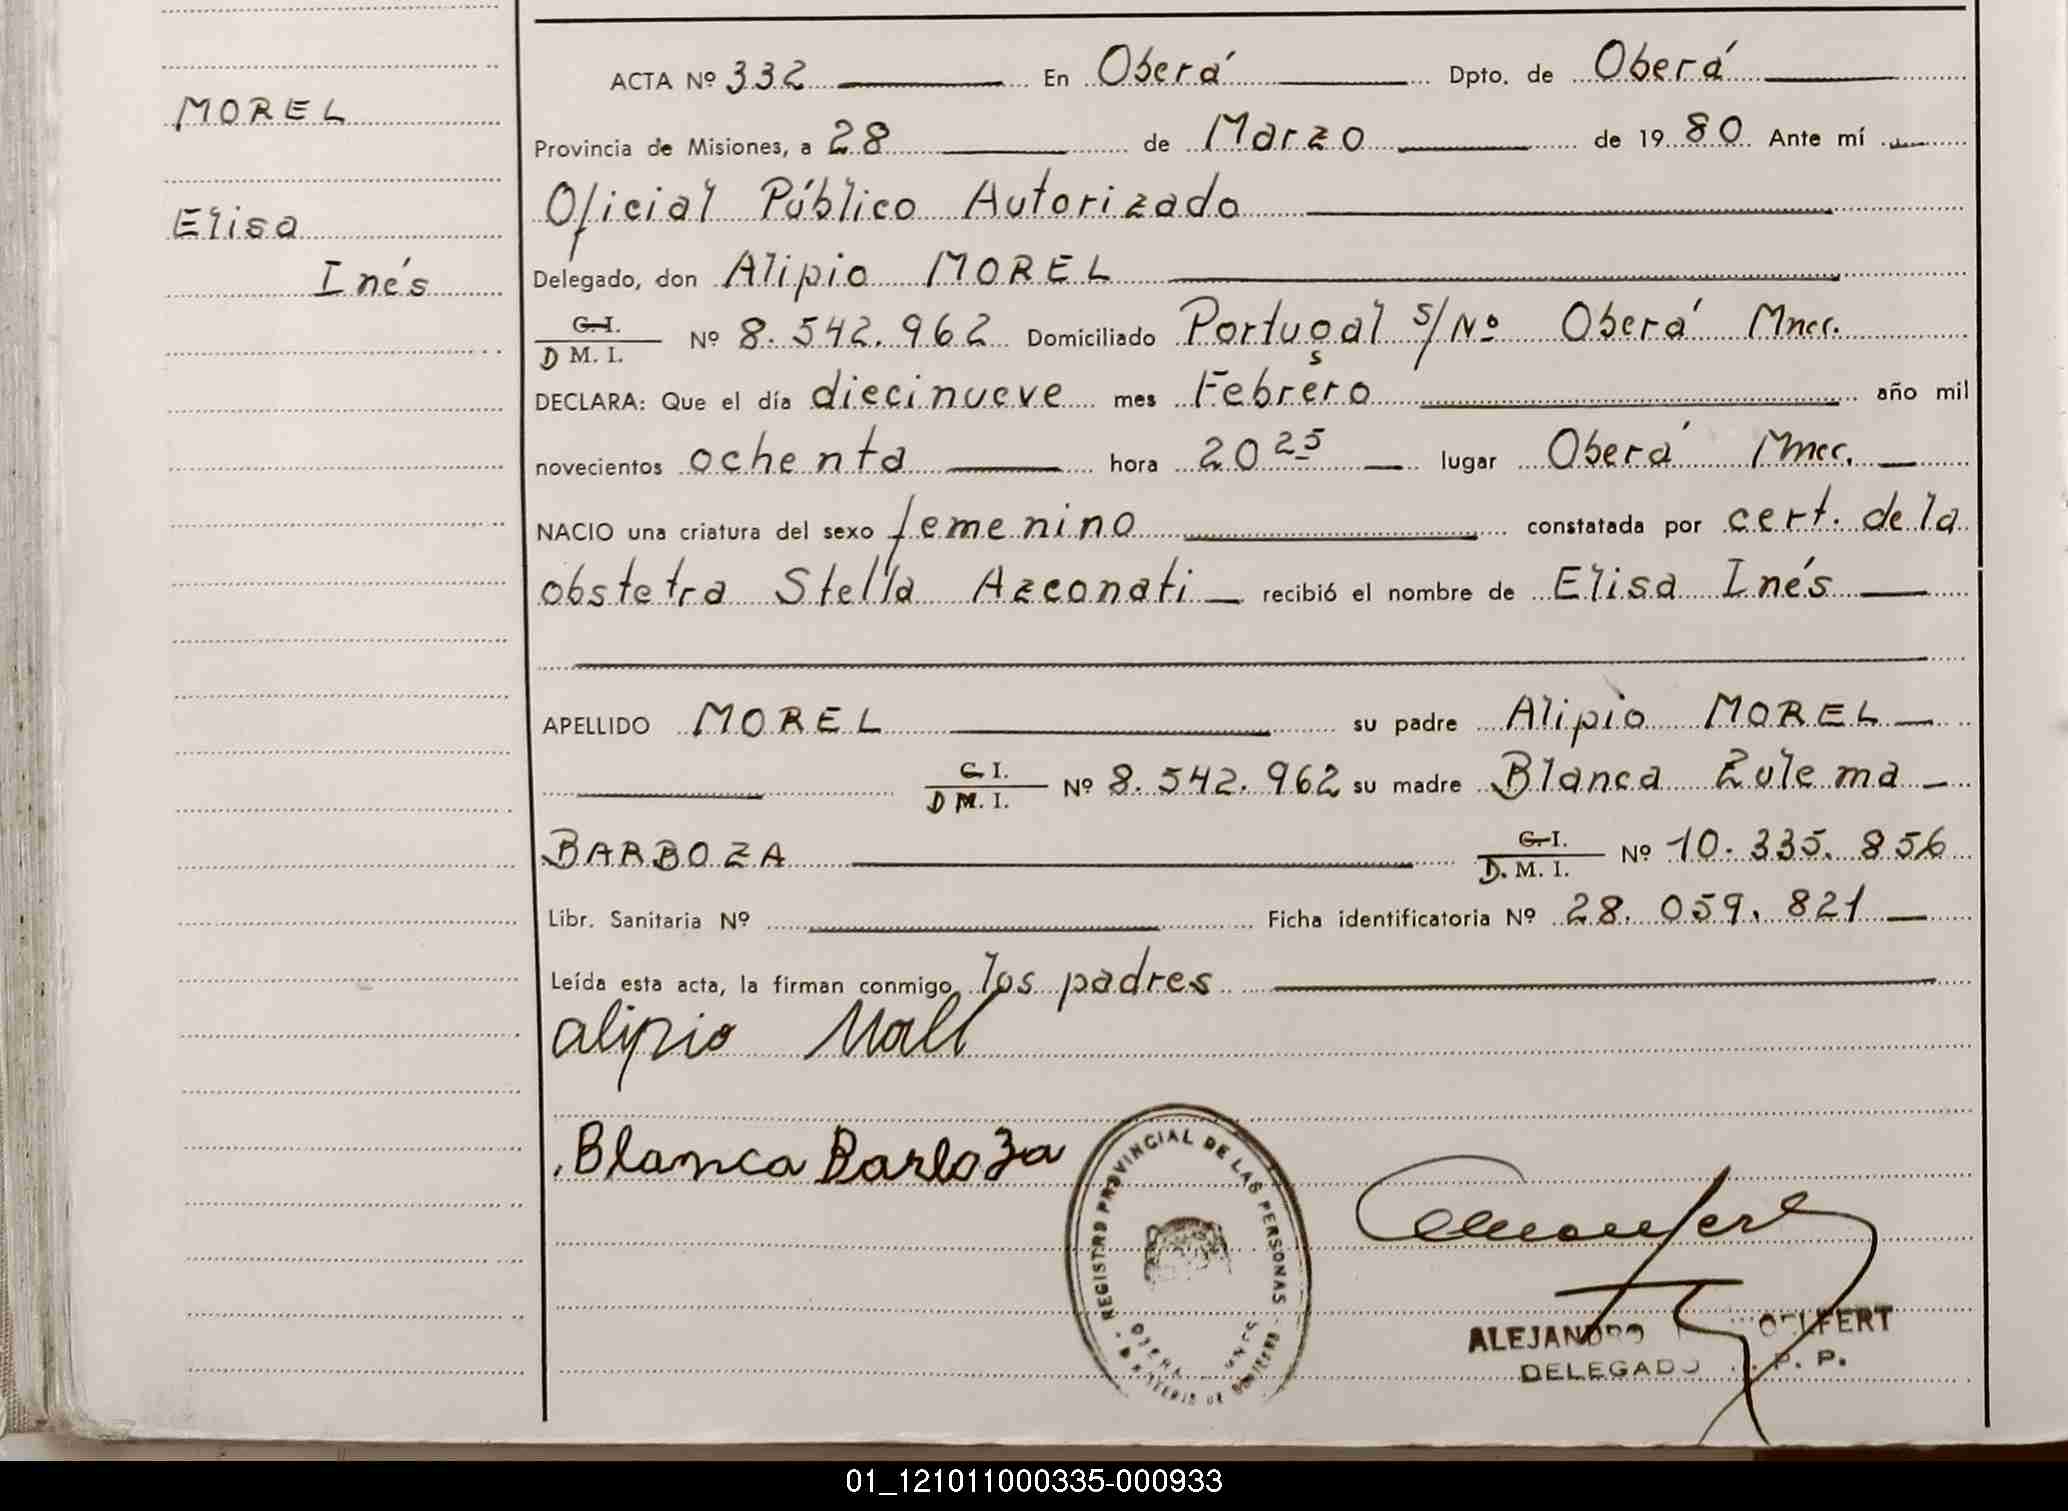 MOREL
Elisa
Inés
ACTA Nº 332 En Oberá Dpto. de Oberá
Provincia de Misiones, a 28 de Marzo de 1980 Ante mí
Oficial Público Autorizado
Delegado, don Alipio MOREL
C. I.
D M. I. Nº 8.542.962 Domiciliado Portugal s/Nº Oberá Mnes.
s
DECLARA: Que el día diecinueve mes Febrero año mil
novecientos ochenta hora 20 25 lugar Oberá Mnes.
NACIO una criatura del sexo femenino constatada por cert. de la
obstetra Stella Azconati recibió el nombre de Elisa Inés
APELLIDO MOREL su padre Alipio MOREL
C. I.
D M. I. Nº 8.542.962 su madre Blanca Zulema
BARBOZA C. I.
D. M. I. Nº 10.335.856
Libr. Sanitaria Nº Ficha identificatoria Nº 28.059.821
Leída esta acta, la firman conmigo los padres
alipio
Blanca Barboza
REGISTRO PROVINCIAL DE LAS PERSONAS
ALEJANDRO
DELEGADO P. P.
01_121011000335-000933